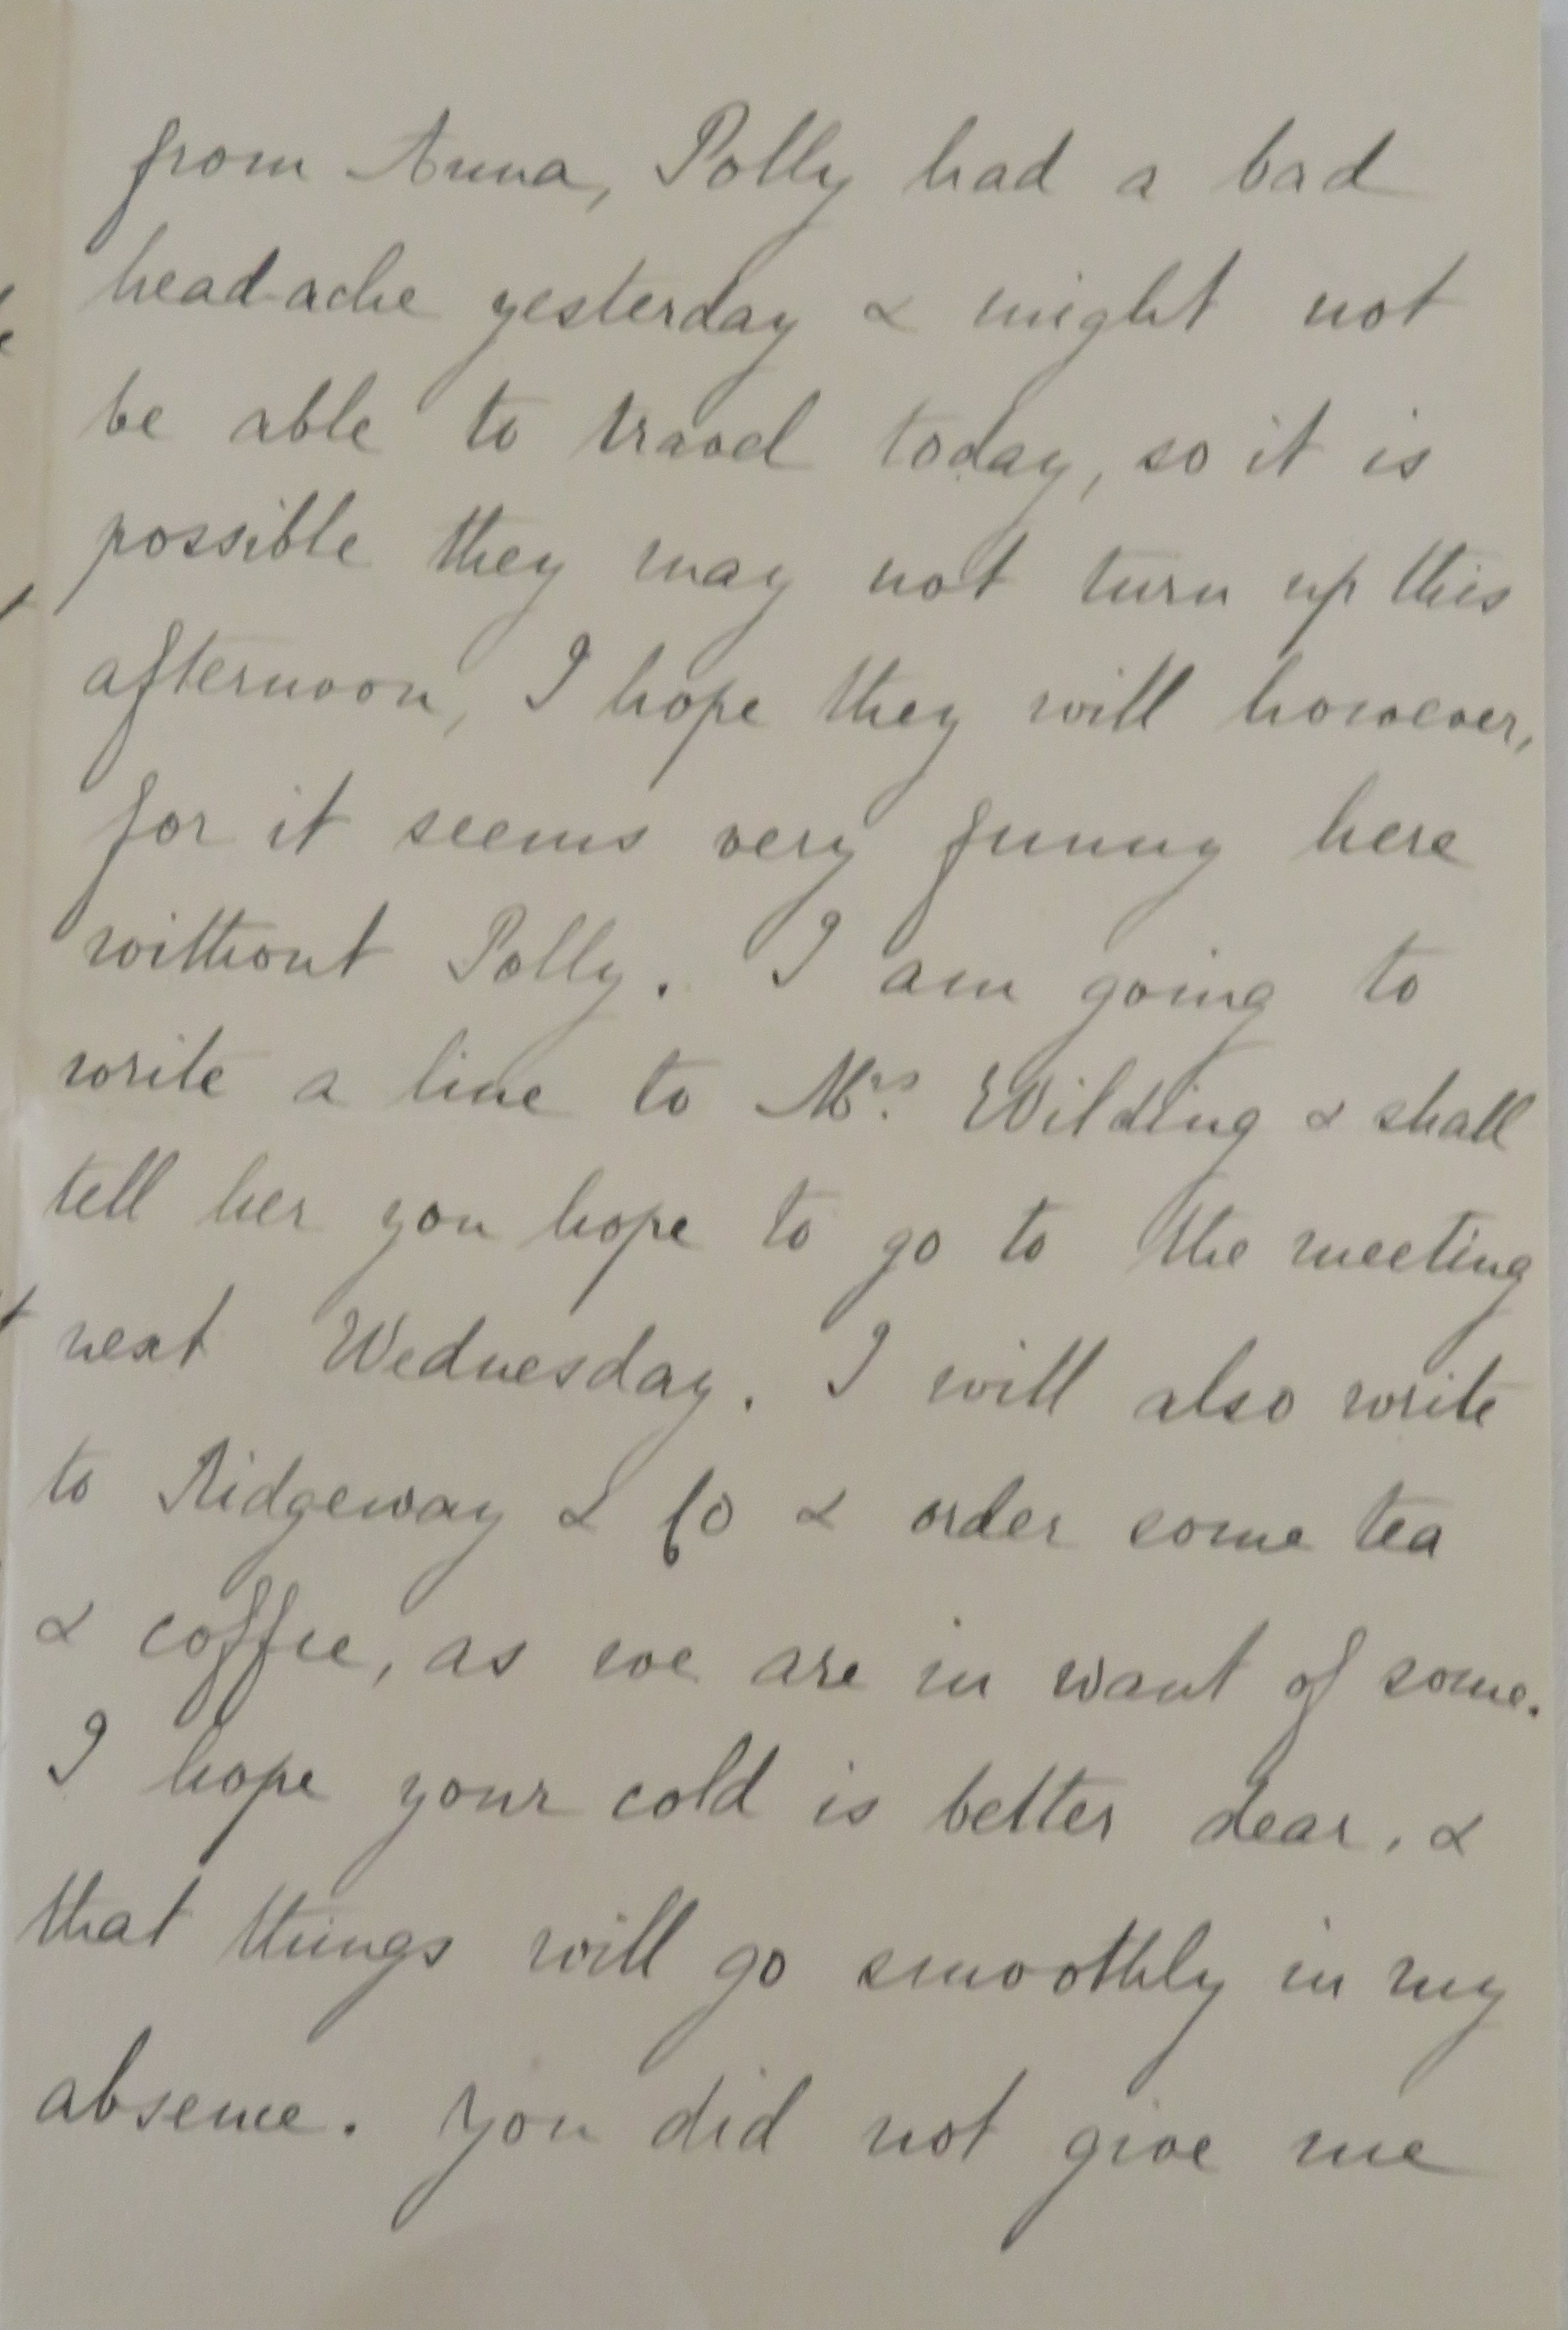 from Anna, Polly had a bad
head-ache yesterday & might not
be able to travel today, so it is
possible they may not turn up this
afternoon, I hope they will however,
for it seems very funny here
without Polly. I am going to
write a line to Mrs. Wilding & shall
tell her you hope to go to the meeting
next Wednesday. I will also write
to Ridgeway & Co & order some tea
& coffee, as we are in want of some.
I hope your cold is better dear, &
that things will go smoothly in my
absence. You did not give me